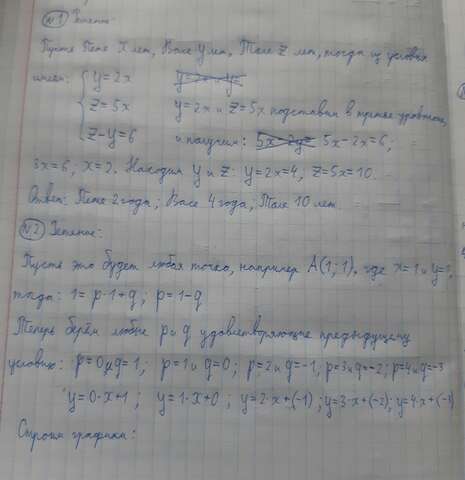 №1 Решение:
Пусть Пете X лет, Васе y лет, Толе Z лет, тогда из условия
имеем: y=2x
Z=5x y=2x и Z=5x подставим в третье уравнение,
Z-y=6 и получим: 5x-2x=6;
3x=6; x=2. Находим y и z: y=2x=4, Z=5x=10.
Ответ: Пете 2 года; Васе 4 года; Толе 10 лет.
№2 Решение:
Пусть это будет любая точка, например A(1;1), где x=1 и y=1,
тогда: 1=p·1+q; p=1-q
Теперь берём любые p и q удовлетворяющие предыдущему
условию: p=0 и q=1; p=1 и q=0; p=2 и q=-1, p=3 и q=-2; p=4 и q=-3
y=0·x+1; y=1·x+0; y=2·x+(-1); y=3·x+(-2); y=4·x+(-3)
Строим графики: